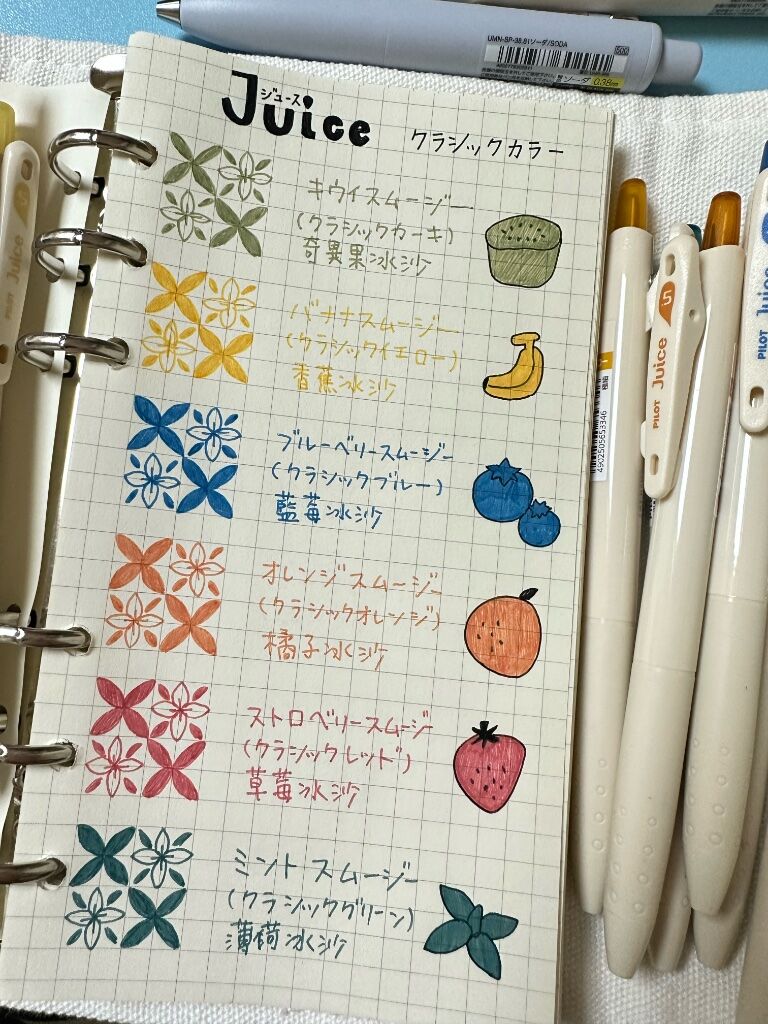 UMN-SP-38.81ソーダ/SODA
ソーダ 0.38mm
ジュース
Juice クラシックカラー
キウイスムージー
(クラシックカーキ)
奇異果冰沙
バナナスムージー
(クラシックイエロー)
香蕉冰沙
ブルーベリースムージー
(クラシックブルー)
藍莓冰沙
オレンジスムージー
(クラシックオレンジ)
橘子冰沙
ストロベリースムージー
(クラシックレッド)
草莓冰沙
ミントスムージー
(クラシックグリーン)
薄荷冰沙
PILOT Juice 5
4902505653346
PILOT Juice .5
PILOT Juice